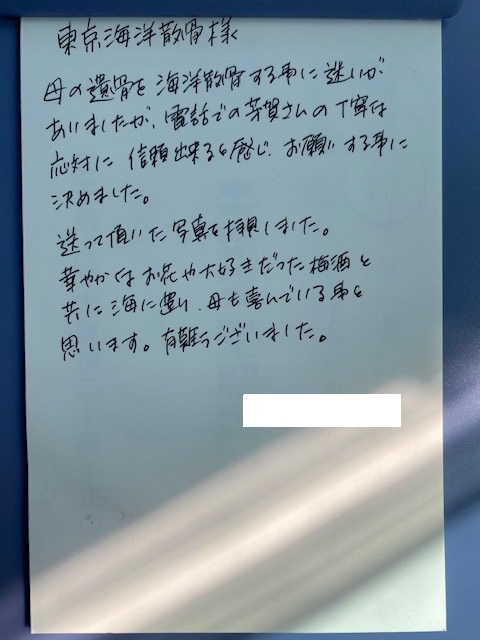 東京海洋散骨様
母の遺骨を海洋散骨する事に迷いが
ありましたが、電話での芳賀さんの丁寧な
応対に信頼出来ると感じ、お願いする事に
決めました。
送って頂いた写真を拝見しました。
華やかなお花や大好きだった梅酒と
共に海に還り、母も喜んでいる事と
思います。有難うございました。